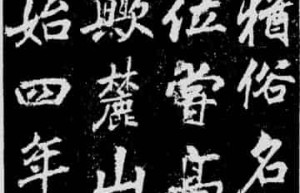 猶俗名
位嘗高
歟麓山
始四年